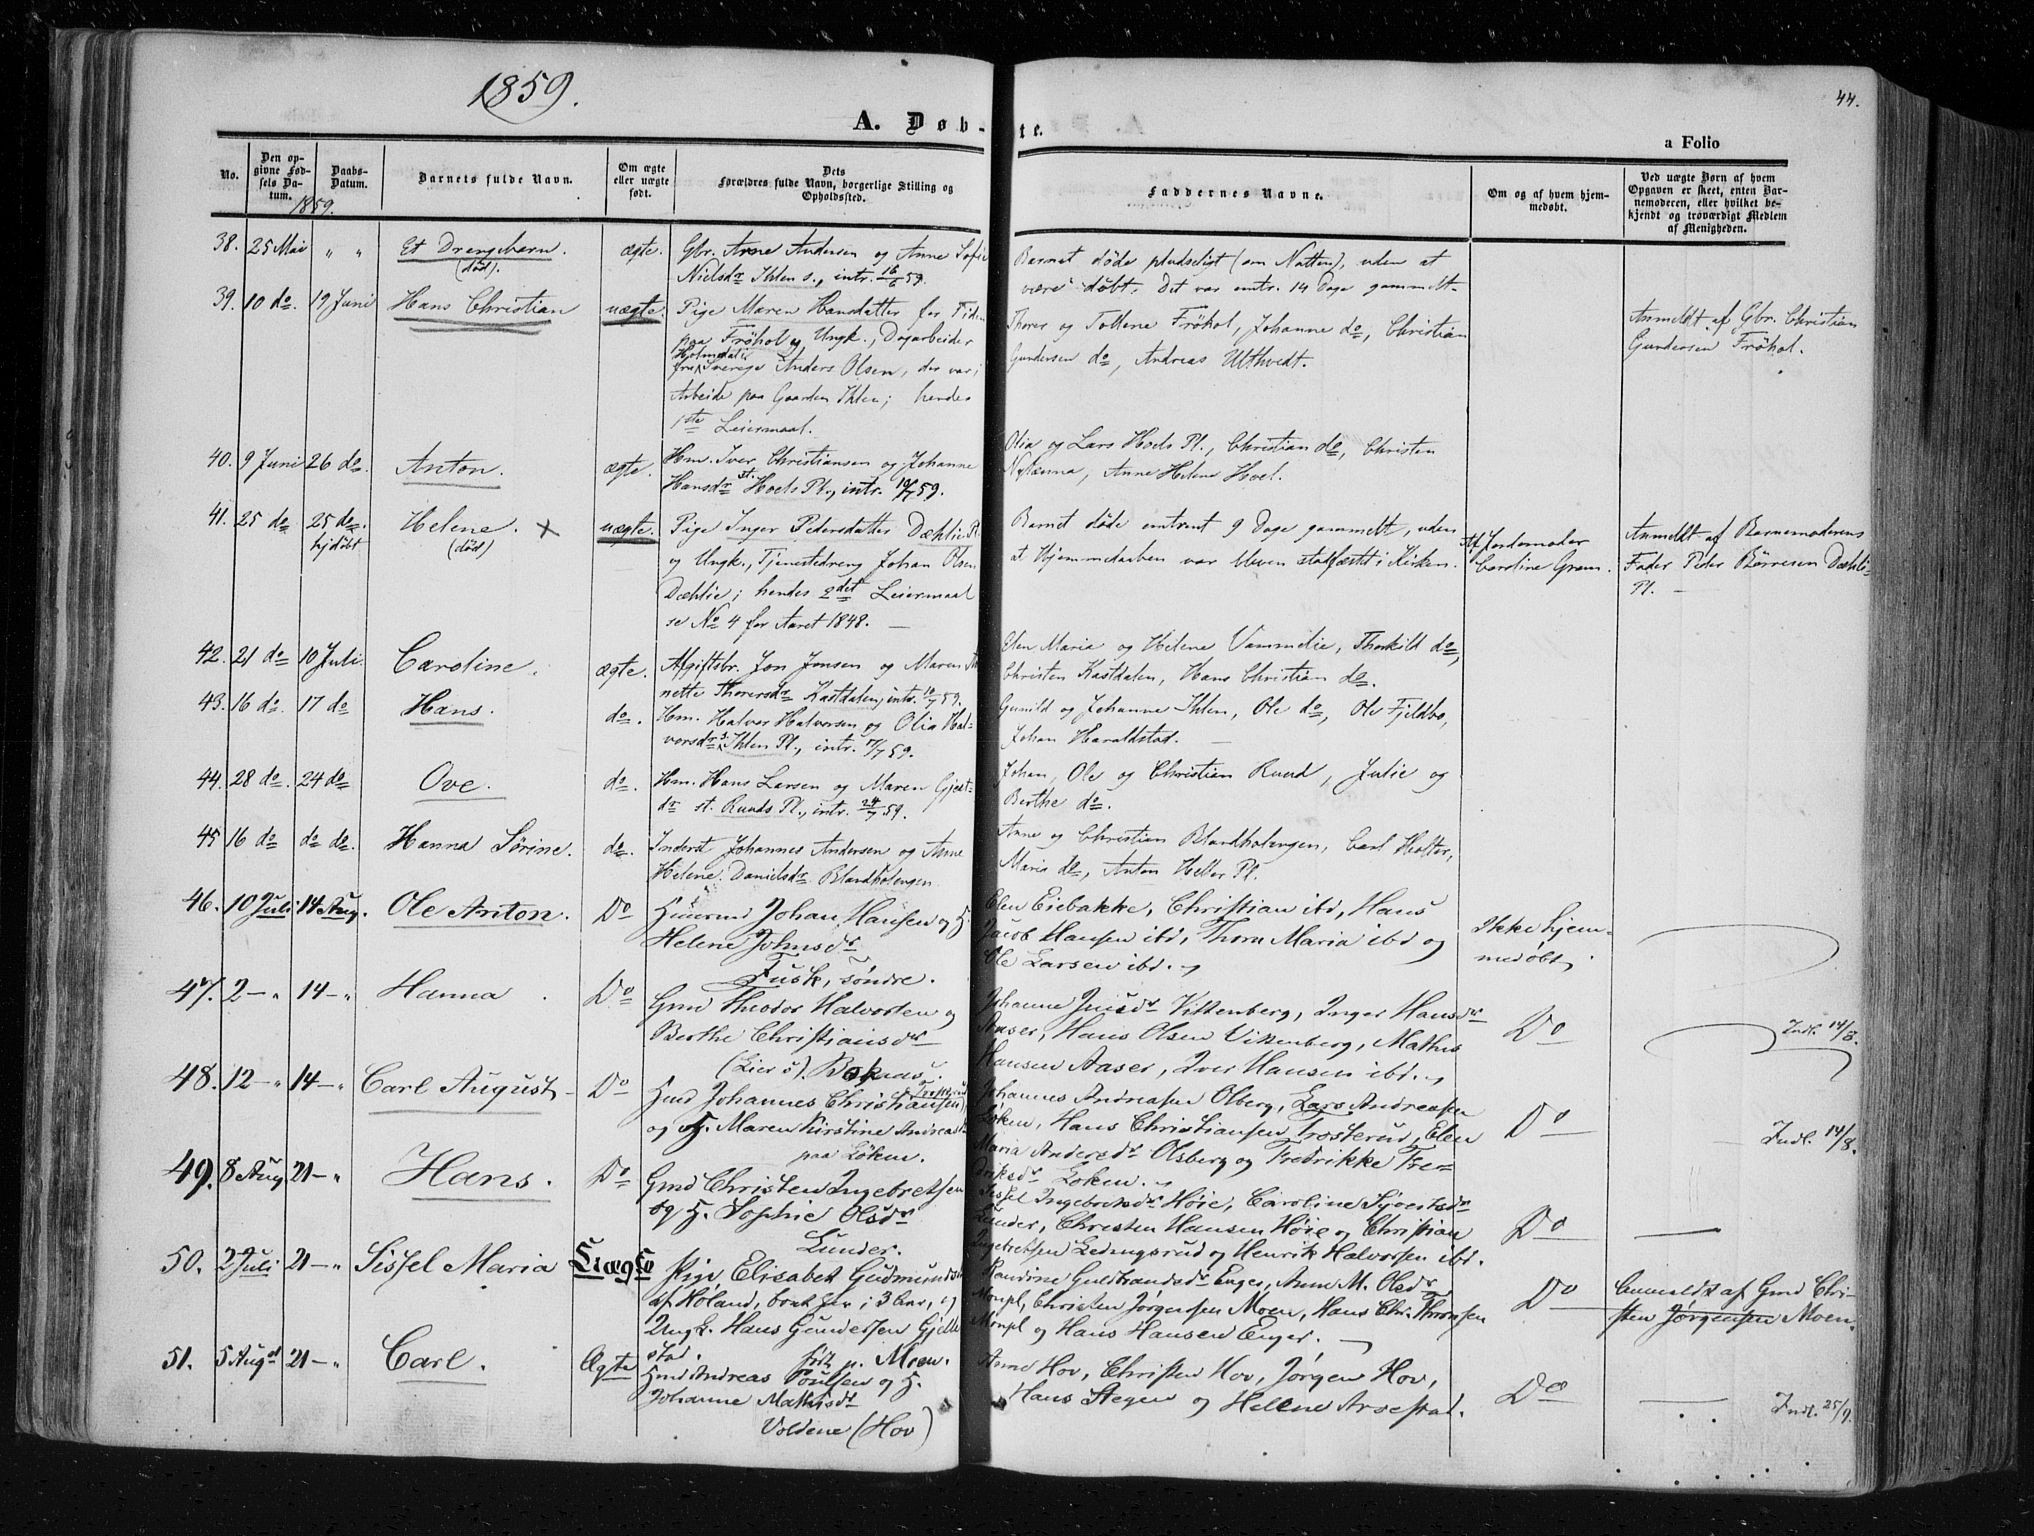 1859.
44.
A. Døb-
te.
a Folio
No.
Den op-
givne Fød-
sels Da-
tum.
Daabs-
Datum.
Barnets fulde Navn.
Om ægte
eller uægte
født.
Dets
Forældres fulde Navn, borgerlige Stilling og
Opholdssted.
Faddernes Navne.
Om og af hvem hjem-
medøbt.
Ved uægte Børn af hvem
Opgaven er skeet, enten Bar-
nemoderen, eller hvilket be-
kjendt og troværdigt Medlem
af Menigheden.
1859.
38. 25 Mai " " Et Drengebarn. ægte. Gbr. Arne Andersen og Anne Sofie
(død).
Nielsdr Ihlen s., intr. 16/6 59.
Barnet døde pludseligt (om Natten), uden at
være døbt. Det var omtr. 14 Dage gammelt.
39. 10 do. 19 Juni Hans Christian uægte. Pige Maren Hansdatter for Tiden
paa Frøhol og Ungk., Dagarbeider
fra Sverige Anders Olsen, der var i
Arbeide paa Gaarden Ihlen; hendes
1ste Leiermaal.
Thores og Tollene Frøhol, Johanne do, Christian
Gundersen do, Andreas Ulthvedt.
Anmeldt af Gbr. Christian
Gundersen Frøhol.
40. 9 Juni 26 do. Anton. ægte. Hm. Iver Christiansen og Johanne
Hansdr st. Hoels Pl., intr. 10/7 59.
Olia og Lars Hoels Pl., Christian do, Christen
Anne Helene Hoel.
41. 25 do 25 do. Helene. x uægte. Pige Inger Pedersdatter Dæhlie Pl
hjdøbt (død)
og Ungk., Tjenestedreng Johan Olsen
Dæhlie; hendes 2det Leiermaal
se No 4 for Aaret 1848. —
Barnet døde omtrent 9 Dage gammelt, uden
at Hjemmedaaben var bleven stadfæstet i Kirken.
Af Jordemoder
Caroline Gram.
Anmeldt af Barnemoderens
Fader Peder Børresen Dæhli-
Pl. —
42. 21 do 10 Juli. Caroline. ægte. Afgiftsbr. Jon Jonsen og Maren An
nette Thorersdr Kastdalen, intr. 10/7 59.
Elen Maria og Helene Vammelie, Thorkild do,
Christen Kastdalen, Hans Christian do.
43. 16 do. 17 do Hans. do. Hm. Halvor Halvorsen og Olia Hal-
vorsdr s. Ihlen Pl., intr. 17/7 59.
Gunild og Johanne Ihlen, Ole do, Ole Fjeldbo,
Johan Haraldstad. —
44. 28 do. 24 do Ove. do. Hm. Hans Larsen og Maren Gjest-
dr st. Ruuds Pl., intr. 24/7 59.
Johan, Ole og Christian Ruud, Julie og
Berthe do.
45 16 do do do. Hanna Sørine. do. Inderst Johannes Andersen og Anne
Helene Danielsdr Blandholengen.
Anne og Christian Blandholengen, Carl Holter,
Maris do, Anton Holter Pl.
46. 10 Juli 14 Aug. Ole Anton. Do Johan Hansen og H.
Helene Johnsdr
Fusk, søndre.
Elen Eiebakke, Christian ibd, Hans
Jacob Hansen ibd, Thora Maria ibd og
Ole Larsen ibd.
Ikke hjem-
medøbt
47. 2 — " 14 — " Hanna Do Gmd Theodor Halvorsen og
Berthe Christiansdr
(Lier s). Bokaas.
Johanne Jensdr Vittenberg, Inger Hansdr
Aaser, Hans Olsen Vittenberg, Mathis
Hansen Aaser, Iver Hansen ibd.
Do
Indl. 14/8.
48. 12 — " 14 — " Carl August Do Hmd Johannes Christiansen
og H. Maren Kirstine Andreasdr
paa Løken.
Johannes Andreasen Olberg, Lars Andreasen
Løken, Hans Christiansen Trosterud, Elen
Maria Andersdr Olsberg og Fredrikke Fre-
driksdr Løken.
Do
Indl. 14/8.
49. 8 Aug 21 — " Hans. Do Gmd Christen Ingebretsen
og H. Sophie Olsdr
Lunder.
Sissel Ingebretsdr Høie, Caroline Syvertsdr
Lunder, Christen Hansen Høie og Christian
Ingebretsen Ledingsrud og Henrik Halvorsen ibd.
Do —
50. 2 Juli 21 — " Sissel Maria Uægte Pige Elisabet Gudmundsd
af Holand, boet her i 3 Aar, og
Ungk. Hans Gundersen Gjelle
stad. født p. Moen.
Randine Guldbrandsdr Enger, Anne M. Olsdr
Moepl, Christen Jørgensen Moen, Hans Chr. Thoresen
Moepl og Hans Hansen Enger. —
Do
Anmeldt af Gmd Chri-
sten Jørgensen Moen.
51. 5 August 21 — " Carl. Ægte Hmd Andreas Poulsen og H.
Johanne Mathisdr
Voldene (Hov)
Anne Hov, Christen Hov, Jørgen Hov,
Hans Hegen og Hellene Arvestad.
Do
Indl. 25/9.